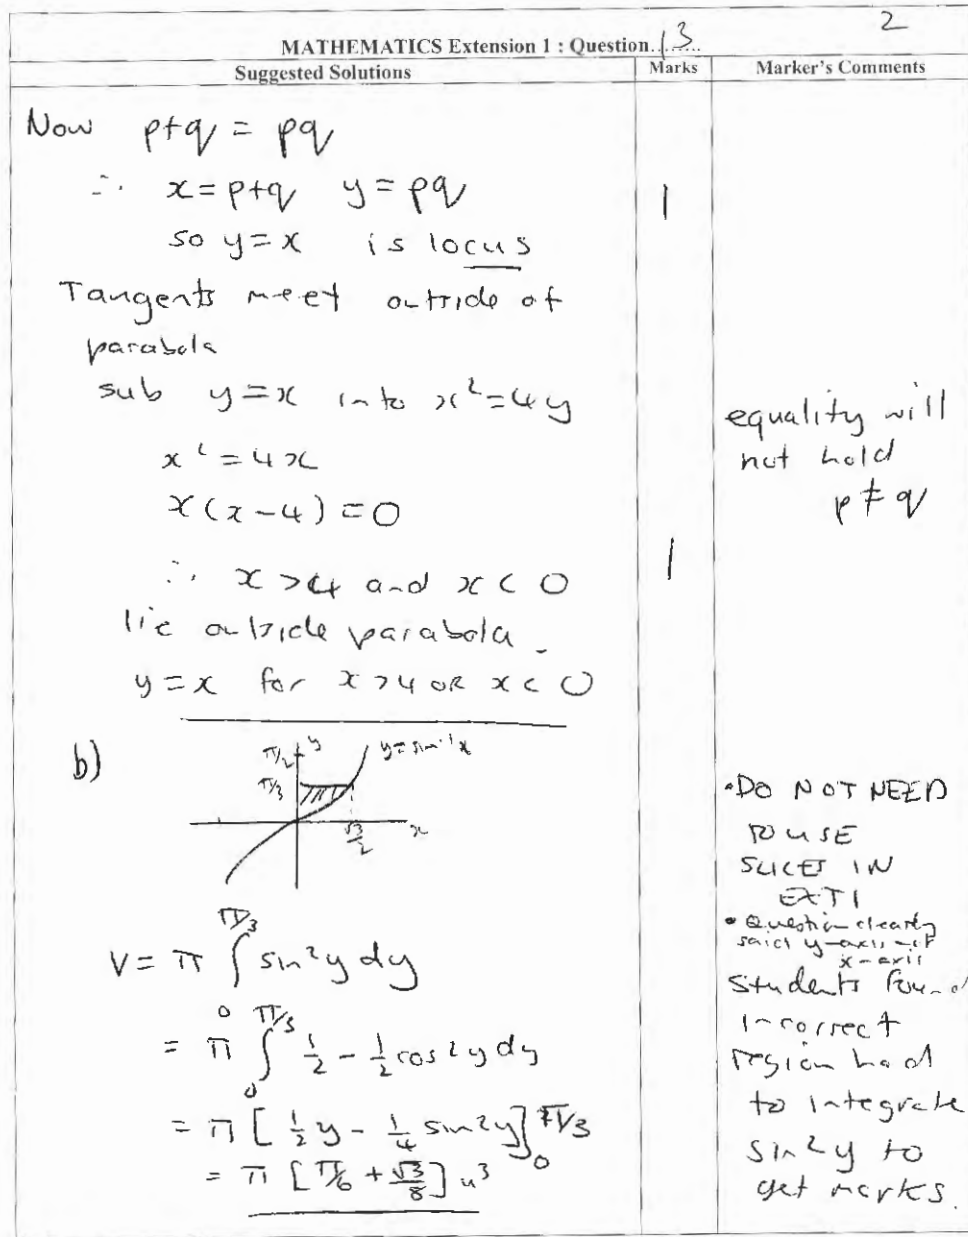 2
MATHEMATICS Extension 1 : Question..13..
Suggested Solutions
Marks
Marker's Comments
Now p+q = pq
∴ x=p+q y=pq
1
so y=x is locus
Tangents meet outside of
parabola
sub y=x into x²=4y
x²=4x
x(x-4)=0
equality will
not hold
p≠q
∴ x>4 and x<0
1
lie outside parabola.
y=x for x>4 OR x<0
b)
π/2
y
y=sin⁻¹x
π/3
√3/2
x
V= π ∫₀^(π/3) sin²y dy
= π ∫₀^(π/3) 1/2 - 1/2 cos2y dy
= π [1/2 y - 1/4 sin2y]₀^(π/3)
= π [π/6 + √3/8] u³
•DO NOT NEED
TO USE
SLICES IN
EXT1
• Question clearly
said y-axis not
x-axis
Students found
incorrect
region had
to integrate
sin²y to
get marks.